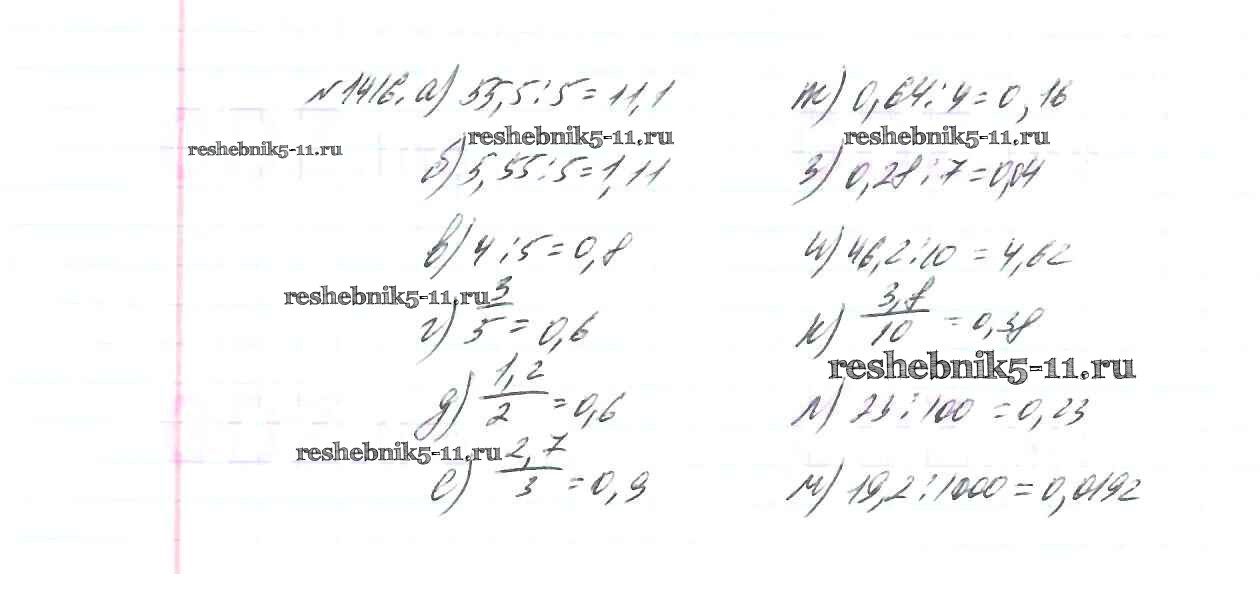 №1416. а) 55,5:5=11,1
reshebnik5-11.ru
reshebnik5-11.ru
б) 5,55:5=1,11
в) 4:5=0,8
reshebnik5-11.ru
г) 3/5=0,6
д) 1,2/2=0,6
reshebnik5-11.ru
е) 2,7/3=0,9
ж) 0,64:4=0,16
reshebnik5-11.ru
з) 0,28:7=0,04
и) 46,2:10=4,62
к) 3,8/10=0,38
reshebnik5-11.ru
л) 23:100=0,23
м) 19,2:1000=0,0192